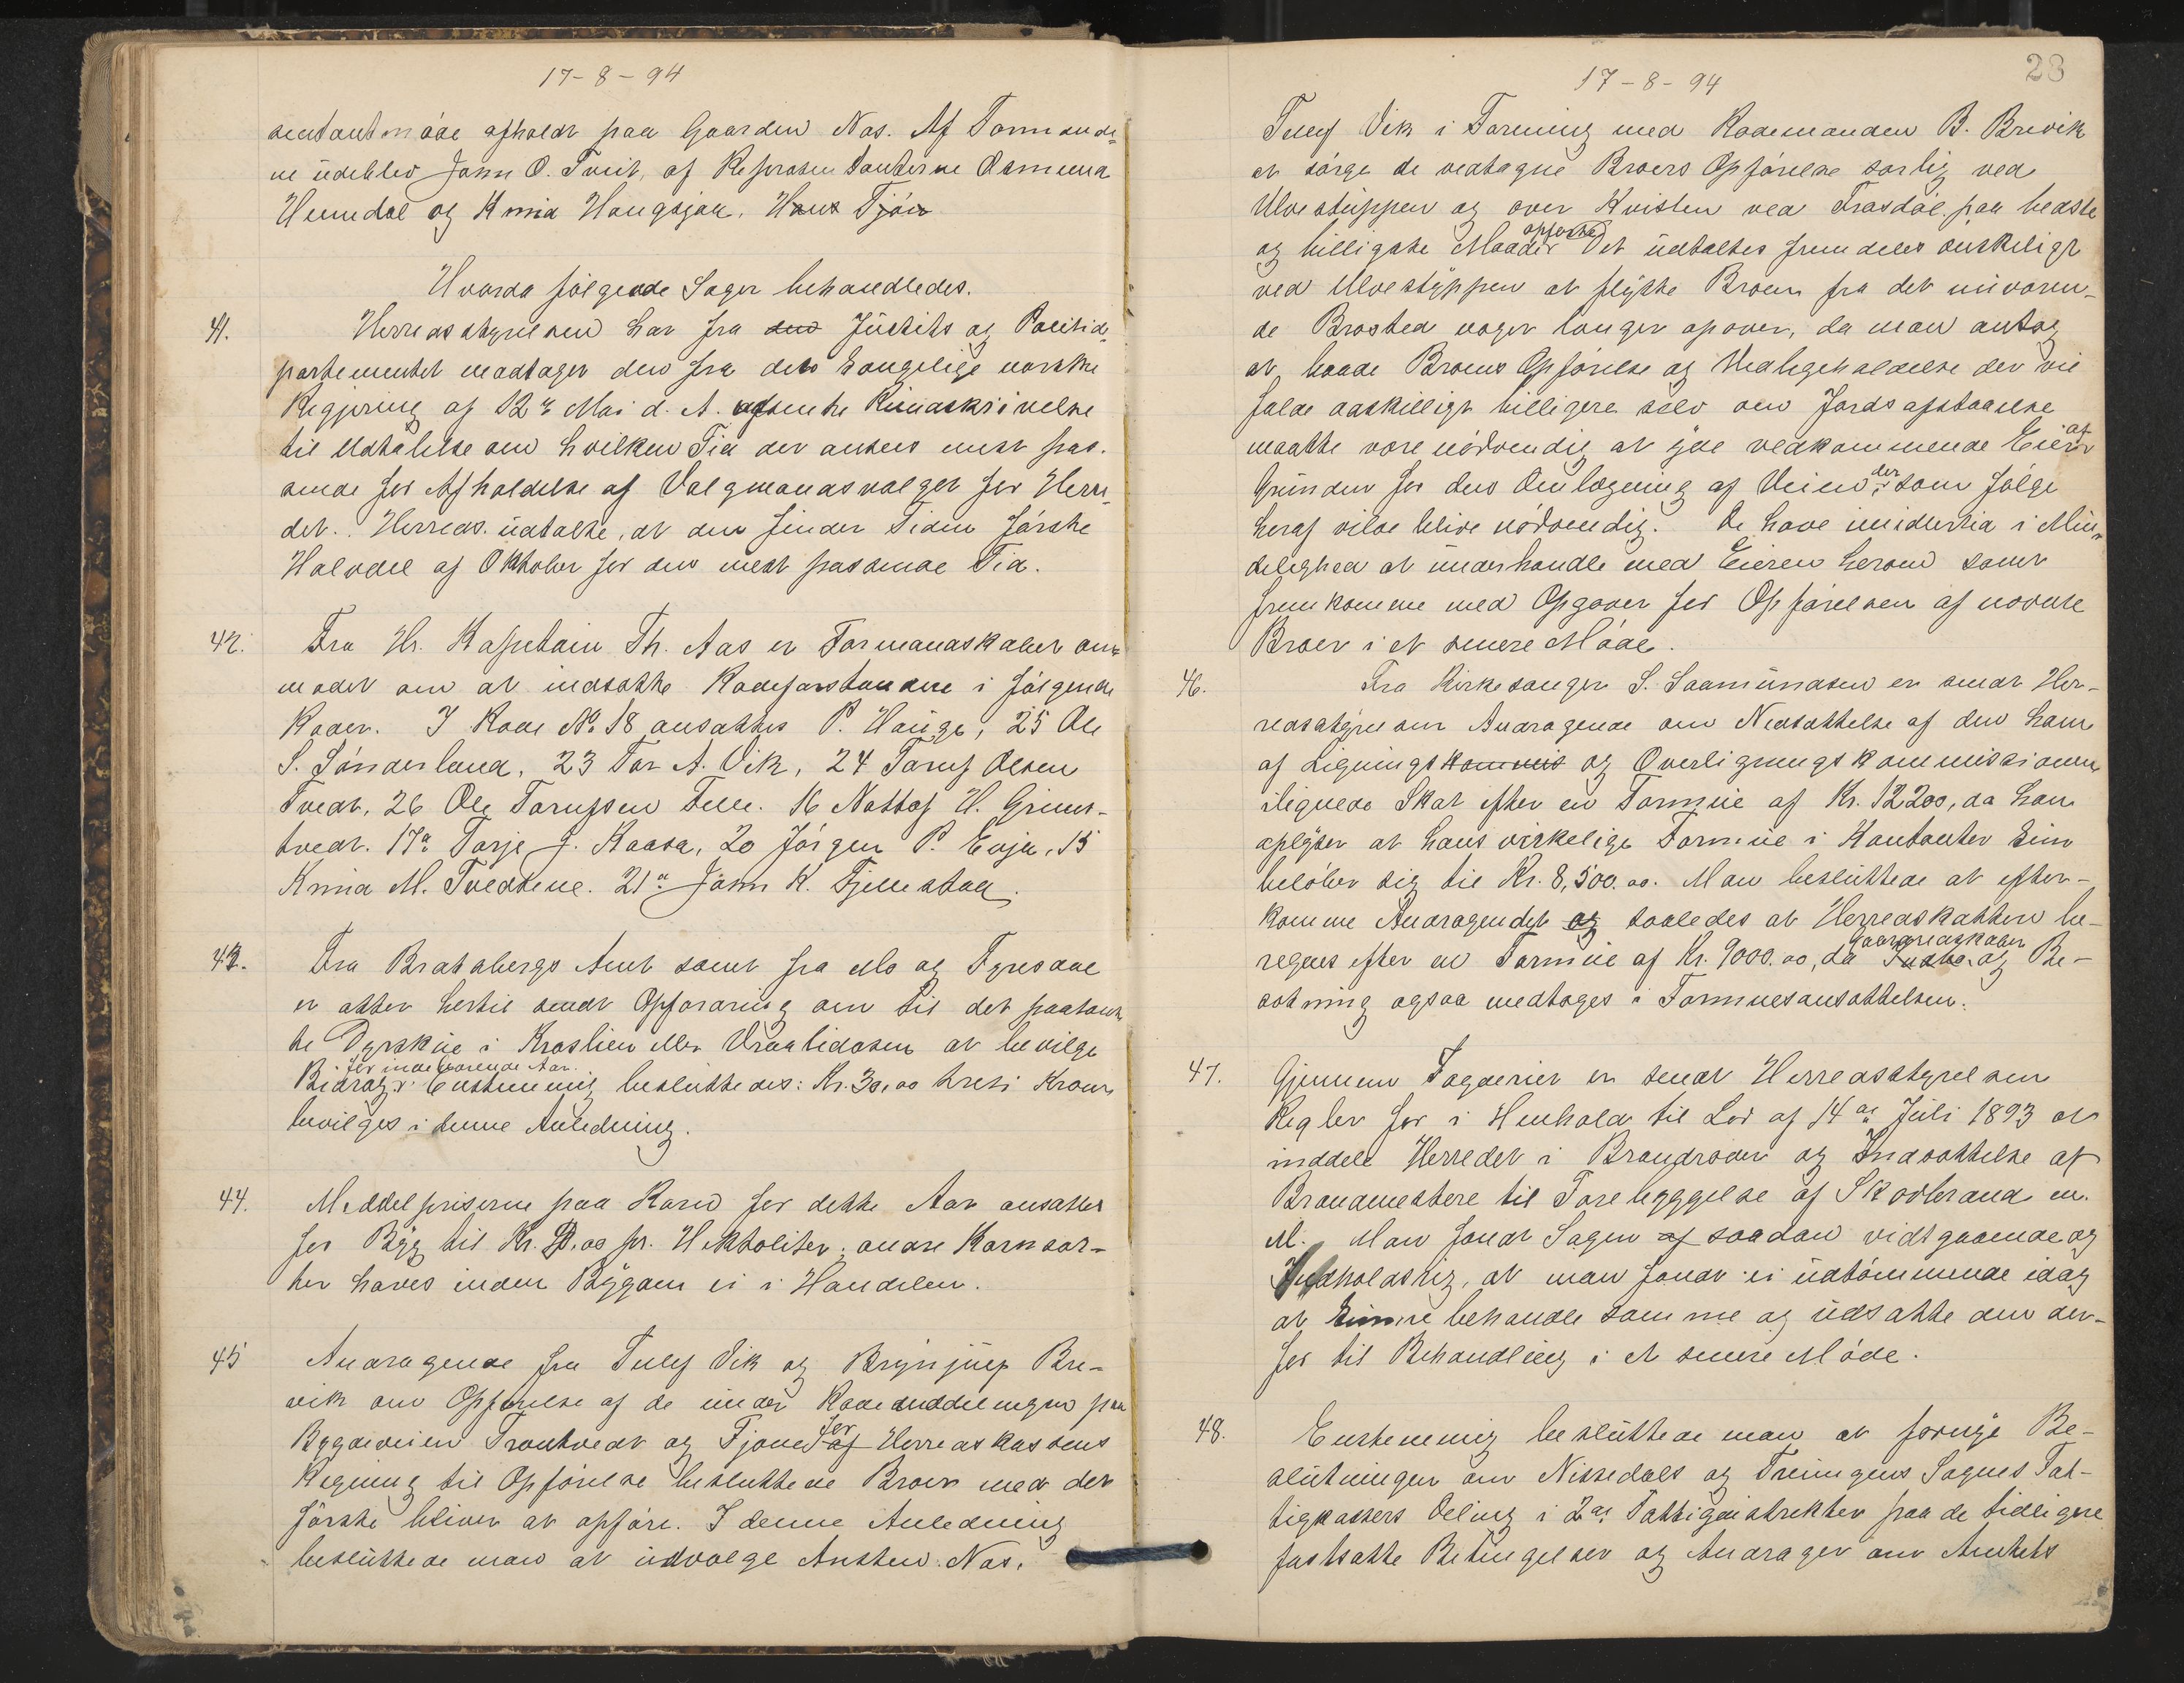 17-8-94
sentantmöde afholdt paa Gaarden Nas. Af Formænde-
ne udeblev Jörn O. Tveit, af Repræsentanterne Asmund
Hemdal og Knud Haugsjaa. Hans Tjön
Hvorda fölgende Sager behandledes.
41. Herredsstyrelsen har fra den Justits og Politide-
partementet modtaget den fra den kongelige norske
Regjering af 12te Mai d. A. afsendte Rundskrivelse
til Udtalelse om hvilken Tid der ansees mest pas-
sende for Afholdelse af Valgmandsvalget for Herre-
det. Herreds. udtalte, at den finder Tiden förste
Halvdel af Oktober for den mest passende Tid.
42. Fra Hr. Kaptain Th. Aas er Formandskabet an-
modet om at indsætte Rodeforstandere i fölgende
Roder. I Rode No. 18 ansattes P. Hauge, 25 Ole
S. Sönderland, 23 Tor A. Vik, 24 Taruf Olsen
Tvedt, 26 Ole Tarufsen Felle. 16 Nottof H. Grims-
tvedt. 17a Tarje J. Kaasa, 20 Jörgen P. Evju, 15
Knud M. Tvedtene. 21a Jörn K. Fjellestad.
43. Fra Bratsbergs Amt samt fra Mo og Fyresdal
er atter hertil sendt Opfordring om til det paatænk
te Dyrskue i Kroslien eller Vraalidosen at bevilge
for indeværende Aar.
Bidrag. Enstemmig besluttedes: Kr. 30,00 treti Kroner
bevilges i denne Anledning.
44. Middelpriserne paa Korn for dette Aar ansattes
for Byg til Kr. ,00 pr. Hektoliter. andre Kornsor-
ter haves inden Bygden ei i Handelen.
45 Andragende fra Tulef Vik og Brynjulf Bre-
vik om Opförelse af de under Rodeinddelingen paa
Bygdeveien Trontvedt og Fjone for af Herredskassens
Regning til Opförelse besluttede Broer med det
förste bliver at opföre. I denne Anledning
besluttede man at udvælge Ansten. Nas.
28
17-8-94
Tulef Vik i Forening med Rodemanden B. Brevik
at sörge de vedtagne Broers Opförelse særlig ved
Ulvestuppen og over Kvisten ved Frasdal paa bedste
opförte
og billigste Maader Det udtaltes fremdeles önskeligt
ved Ulvestyppen at flytte Broen fra det nuværen-
de Brosted noget længer opover, da man antog
at baade Broens Opförelse og Vedligeholdelse der vil
falde adskilligt billigere selv om Jordsafstaaelse
maatte være nödvendig at göre vedkommende Eier af
Grunden for den Omlægning af Veien, der som fölge
heraf vilde blive nödvendig. De have imidlertid i Min-
delighed at underhandle med Eieren herom samt
fremkomme med Opgaver for Opförelsen af nævnte
Broer i et senere Möde.
46. Fra Kirkesanger S. Saamundsen er sendt Her-
redsstyrelsen Andragende om Nedsættelse af den ham
af Ligningskommis og Overligningskommissionen
ilignede Skat efter en Formue af Kr. 12200, da han
oplyser at hans virkelige Formue i Kontanter kun
belöber sig til Kr. 8,500.00. Man besluttede at efter-
komme Andragendet og saaledes at Herredskatten be-
regnes efter en Formue af Kr. 9000.00, da Indbo. Gaardredskaber og Be-
sætning ogsaa medtages i Formuesansættelsen.
47. Gjennem Fogderiet er sendt Herredsstyrelsen
Regler for i Henhold til Lov af 14de Juli 1893 at
inddele Herredet i Brandroder og Indsættelse af
Brandmestere til Forebyggelse af Skovbrand m.
M. Man fandt Sagen af saadan vidtgaaende og
Indholdsrig, at man fandt ei udtömmende idag
at kunne behandle samme og udsatte den der-
for til Behandling i et senere Möde.
48. Enstemmig besluttede man at fornye Be-
slutningen om Nissedals og Treungens Sognes Fat-
tigkassers Deling i 2de Fattigdistrikter paa de tidligere
fastsatte Betingelser og Andrager om Amtets